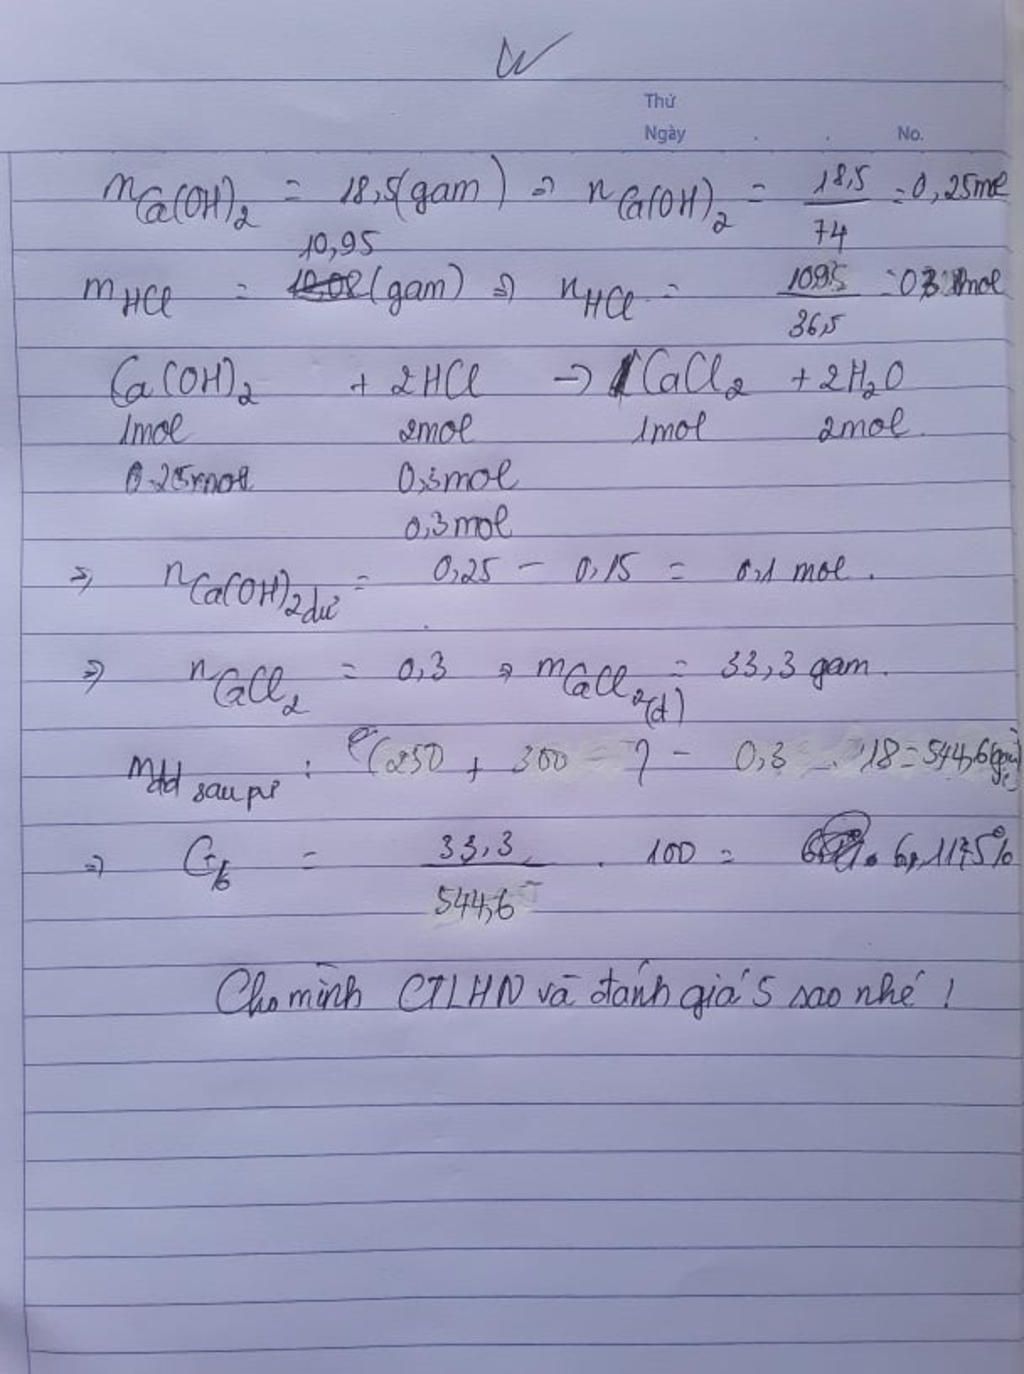 Thứ
Ngày . . No.
mCa(OH)2 = 18,5(gam) => nCa(OH)2 = 18,5/74 = 0,25mol
10,95
mHCl = (gam) => nHCl = 10,95/36,5 = 0,3 mol
Ca(OH)2 + 2HCl -> CaCl2 + 2H2O
1mol 2mol 1mol 2mol.
0.25mol 0,3mol
0,3mol
=> nCa(OH)2 dư = 0,25 - 0,15 = 0,1 mol.
=> nCaCl2 = 0,3 => mCaCl2(d) = 33,3 gam.
mdd sau pư : (250 + 300 - ) - 0,3 . 18 = 544,6(gam)
=> C% = 33,3/544,6 . 100 = 6,1175%
Cho mình CTLHN và đánh giá 5 sao nhé !